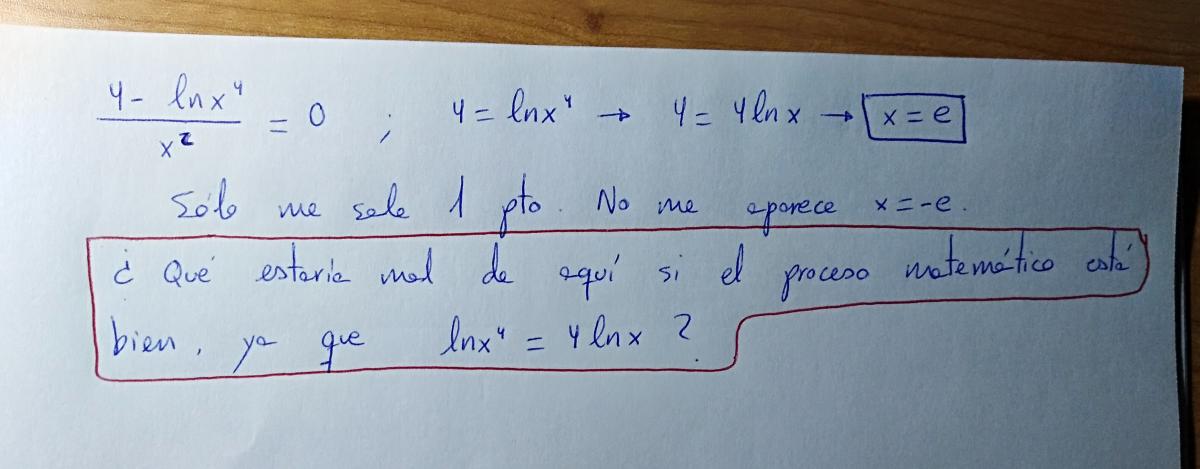 4 - lnx⁴ / x² = 0 ; 4 = lnx⁴ → 4 = 4lnx → x = e
Sólo me sale 1 pto. No me aparece x = -e.
¿ Qué estaría mal de aquí si el proceso matemático está
bien, ya que lnx⁴ = 4lnx ?